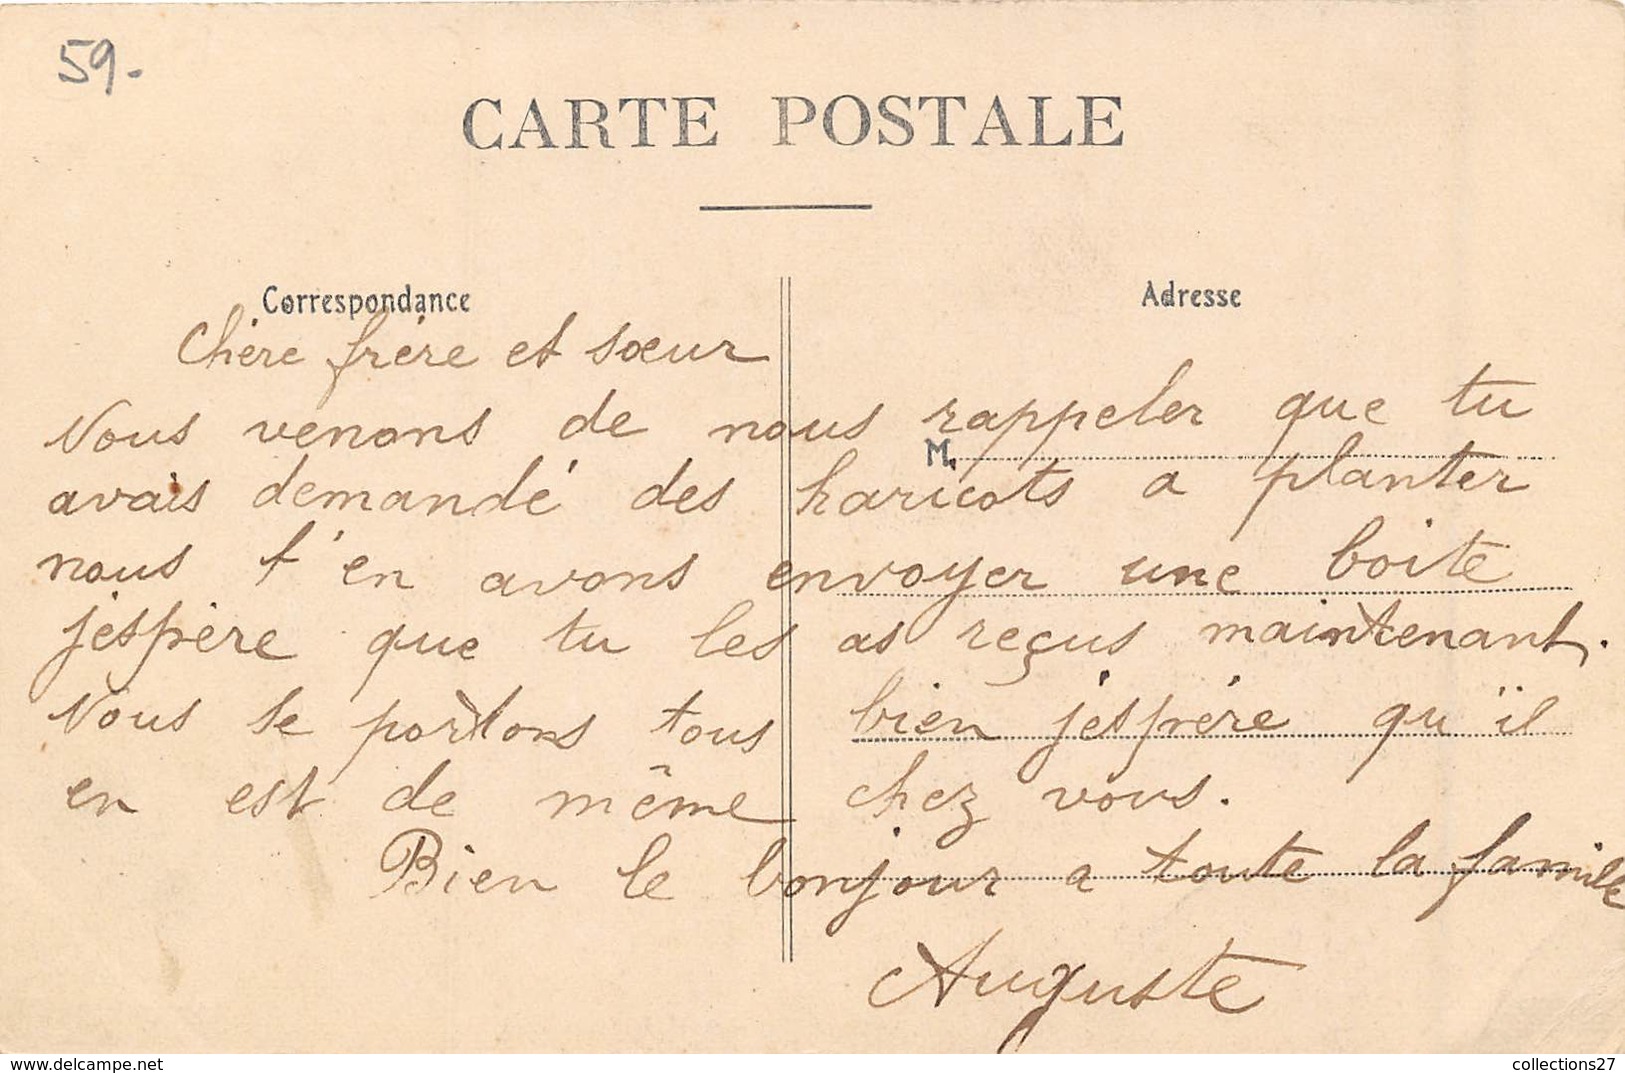 59-
CARTE POSTALE
Correspondance
Adresse
Chère frère et sœur
Nous venons de nous rappeler que tu
M.
avais demandé des haricots a planter
nous t'en avons envoyer une boite
j'espère que tu les as reçus maintenant.
Nous se portons tous bien j'espère qu'il
en est de même chez vous.
Bien le bonjour a toute la famille
Auguste
www.delcampe.net
collections27